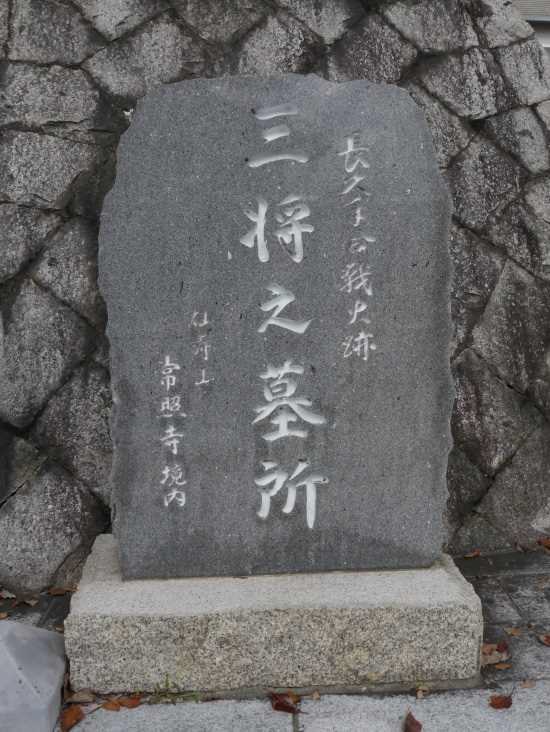 長久手合戦史跡
三将之墓所
仏寿山
常照寺境内